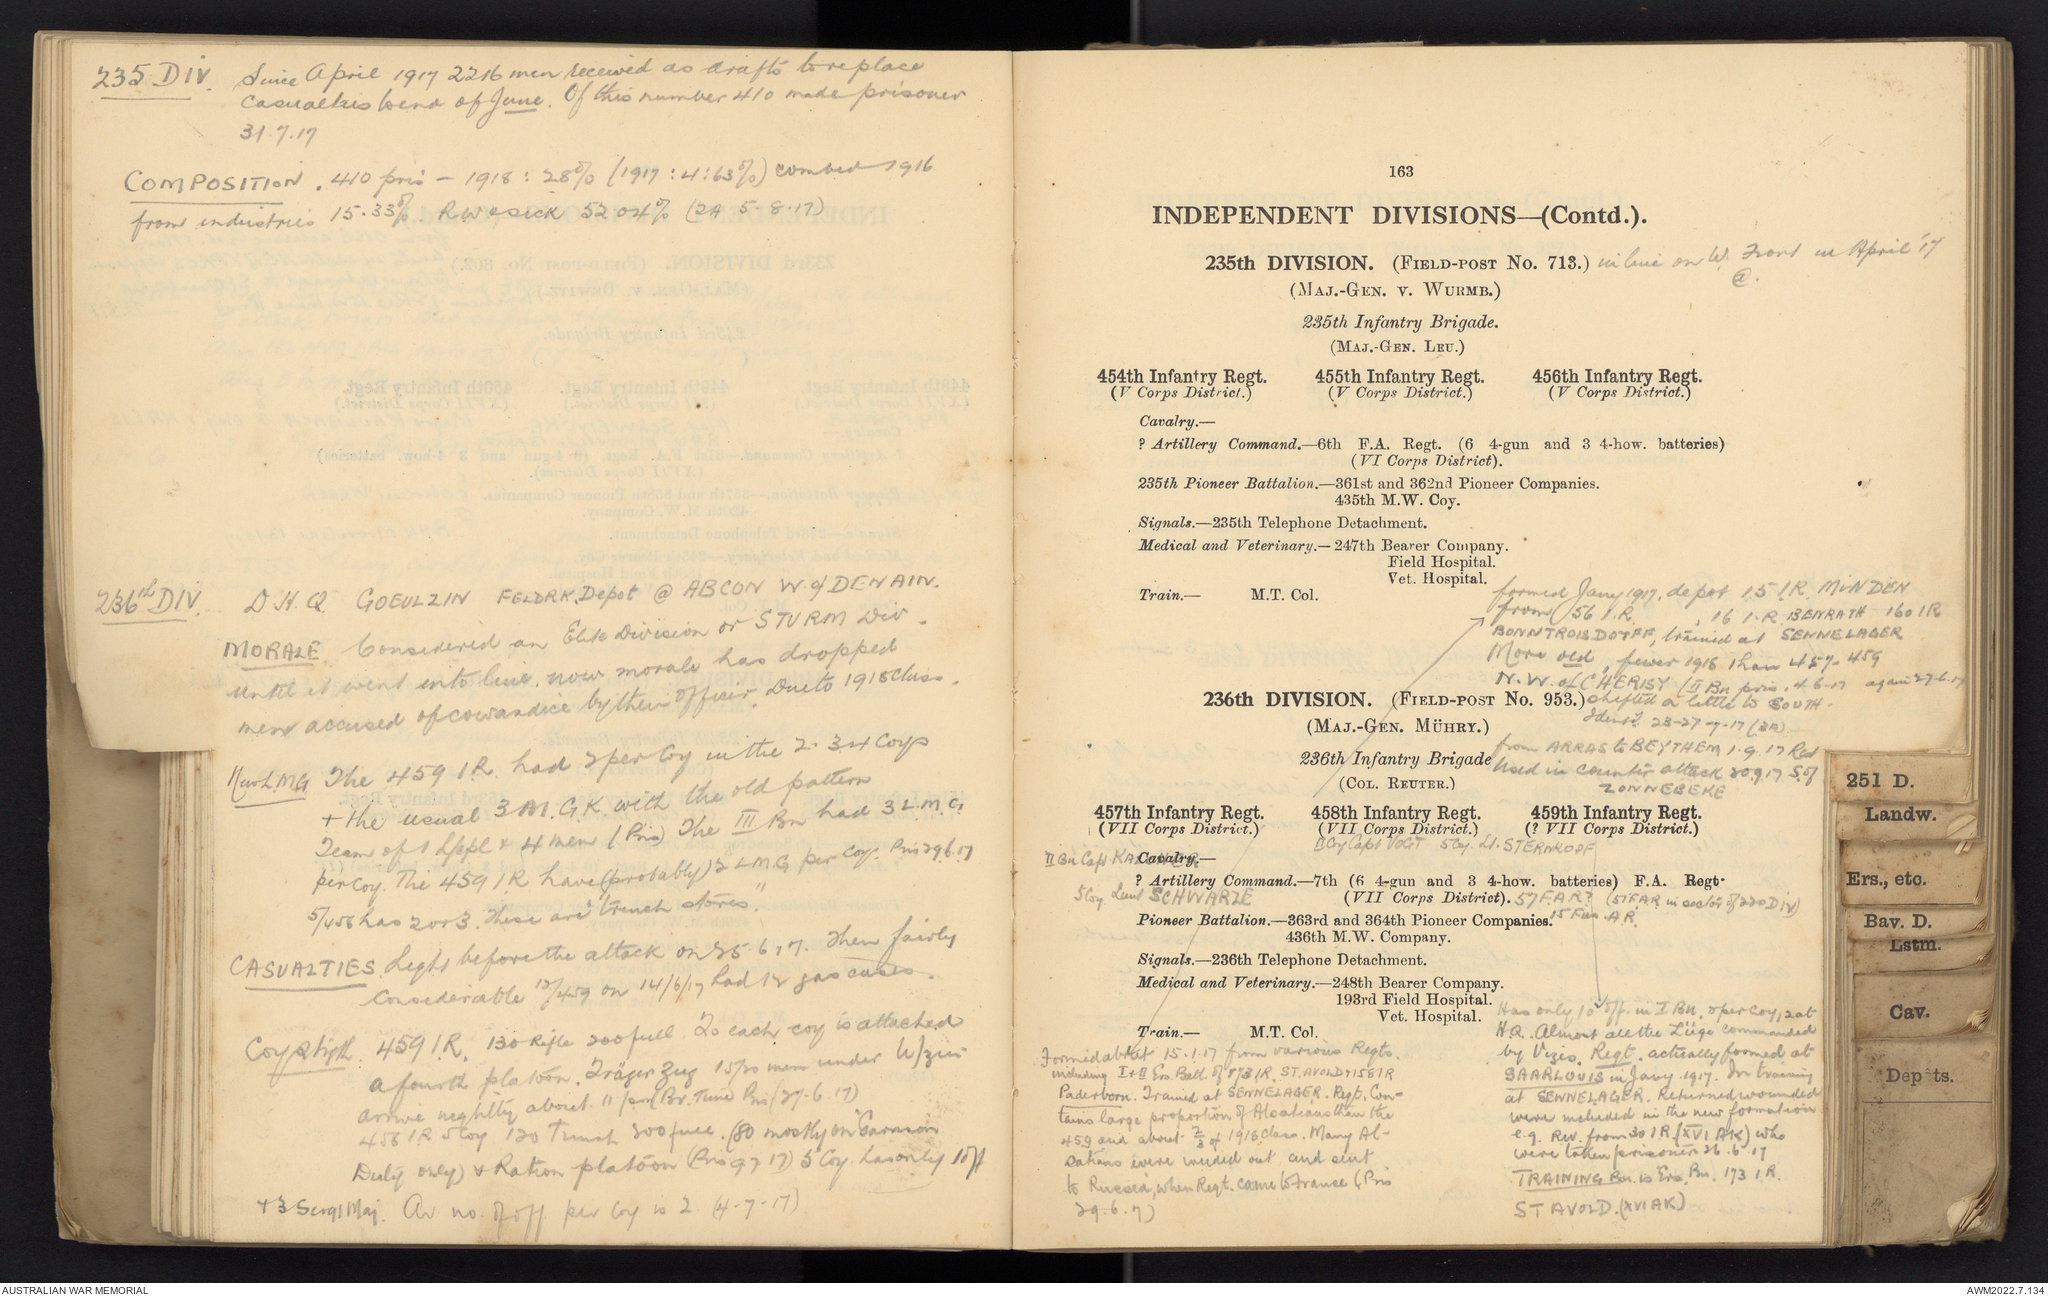 235 DIV. Since April 1917 2216 men received as drafts to replace
casualties to end of June. Of this number 410 made prisoner
31.7.17
COMPOSITION. 410 pris - 1918 : 28% (1917 : 4:63%) combed 1916
from industries 15.33%. R.W & sick 52 04% (2A 5-8-17)
236th DIV. D.H.Q GOEULZIN FELDRK. Depot @ ABCON W of DENAIN.
MORALE Considered an Elite Division or STURM Div.
until it went into line. now morale has dropped
men accused of cowardice by their officer. Due to 1918 class.
New L.M.G The 459 I.R. had 2 per Coy in the 2. 3 4 Coys
+ the usual 3 M.G.K. with the old pattern
Team of 1 + 4 men (Pris) The III Bn had 3 L.M.G.
per coy. The 459 I R have (probably) 2 L.M.G per Coy. Pris 29.6.17
5/458 has 2 or 3. These are "trench stores."
CASUALTIES. Light before the attack on 25.6.17. Then fairly
considerable 12/459 on 14/6/17 had 12 gas cases.
Coy Strgth. 459 I.R. 130 Rifle 200 full. To each coy is attached
a fourth platoon. Träger Zug 15/20 men under
arrive nightly about 11 pm Br. Time Pris (27.6.17)
458 I R 5 Coy 120 Trench 200 full. (80 mostly on Garrison
Duty only) & Ration platoon (Pris 9 7 17) 5 Coy has only 1 off
+ 3 Sergt Maj. Av no. of off per Coy is 2 (4-7-17)
163
INDEPENDENT DIVISIONS—(Contd.).
235th DIVISION. (FIELD-POST No. 713.) in line on W. Front in April '17
@.
(MAJ.-GEN. V. WURMB.)
235th Infantry Brigade.
(MAJ.-GEN. LEU.)
454th Infantry Regt. 455th Infantry Regt. 456th Infantry Regt.
(V Corps District.) (V Corps District.) (V Corps District.)
Cavalry.—
? Artillery Command.—6th F.A. Regt. (6 4-gun and 3 4-how. batteries)
(VI Corps District).
235th Pioneer Battalion.—361st and 362nd Pioneer Companies.
435th M.W. Coy.
Signals.—235th Telephone Detachment.
Medical and Veterinary.—247th Bearer Company.
Field Hospital.
Vet. Hospital.
Train.— M.T. Col.
formed Jany 1917, depot 15 I.R. MINDEN
from 56 I.R., 16 I.R. BENRATH 160 I R
BONN TROISDORFF, trained at SENNELAGER
More old, fewer 1918 than 457. 459
N.W. of CHERISY (II Bn pris. 4.6.17 again 27.6.17
236th DIVISION. (FIELD-POST No. 953.) shifted a little to SOUTH.
Ident? 23-27-7-17 (3A)
(MAJ.-GEN. MÜHRY.)
from ARRAS to BEYTHEM 1.9.17 Red
236th Infantry Brigade
Used in counter attack 20.9.17 S. of
ZONNEBEKE
(COL. REUTER.)
457th Infantry Regt. 458th Infantry Regt. 459th Infantry Regt.
(VII Corps District.) (VII Corps District.) (? VII Corps District.)
Capt VOGT 5 Coy. Lt. STERNKOPF
II Bn Capt
Cavalry.—
? Artillery Command.—7th (6 4-gun and 3 4-how. batteries) F.A. Regt.
5 Coy Leut SCHWARZE
(VII Corps District). 57 F.A.R? (57 F.A.R. in sector of 220 DIV)
Pioneer Battalion.—363rd and 364th Pioneer Companies. 15 Fus. A.R.
436th M.W. Company.
Signals.—236th Telephone Detachment.
Medical and Veterinary.—248th Bearer Company.
193rd Field Hospital.
Vet. Hospital.
Train.— M.T. Col.
Formed about 15.1.17 from various Regts.
including I + II Ers. Batl. of 173 I R, ST. AVOLD + 158 I R
Paderborn. Trained at SENNELAGER. Regt. Con-
tains large proportion of Alsatians than the
459 and about 2/3 of 1916 class. Many Al-
satians were weeded out and sent
to Russia, when Regt. came to France (Pris
29.6.7)
Has only 10 off. in I Bn, 2 per Coy, 2 at
H.Q. Almost all the Züge commanded
by Vizes. Regt. actually formed at
SAARLOUIS in Jany 1917. In training
at SENNELAGER. Returned wounded
were included in the new formation
e.g. Rw. from 30 I R (XVI AK) who
were taken prisoner 26.6.17
TRAINING Bn. is Ers. Bn. 173 I R.
ST AVOLD. (XVI AK)
251 D.
Landw.
Ers., etc.
Bav. D.
Lstm.
Cav.
Depots.
AUSTRALIAN WAR MEMORIAL
AWM2022.7.134